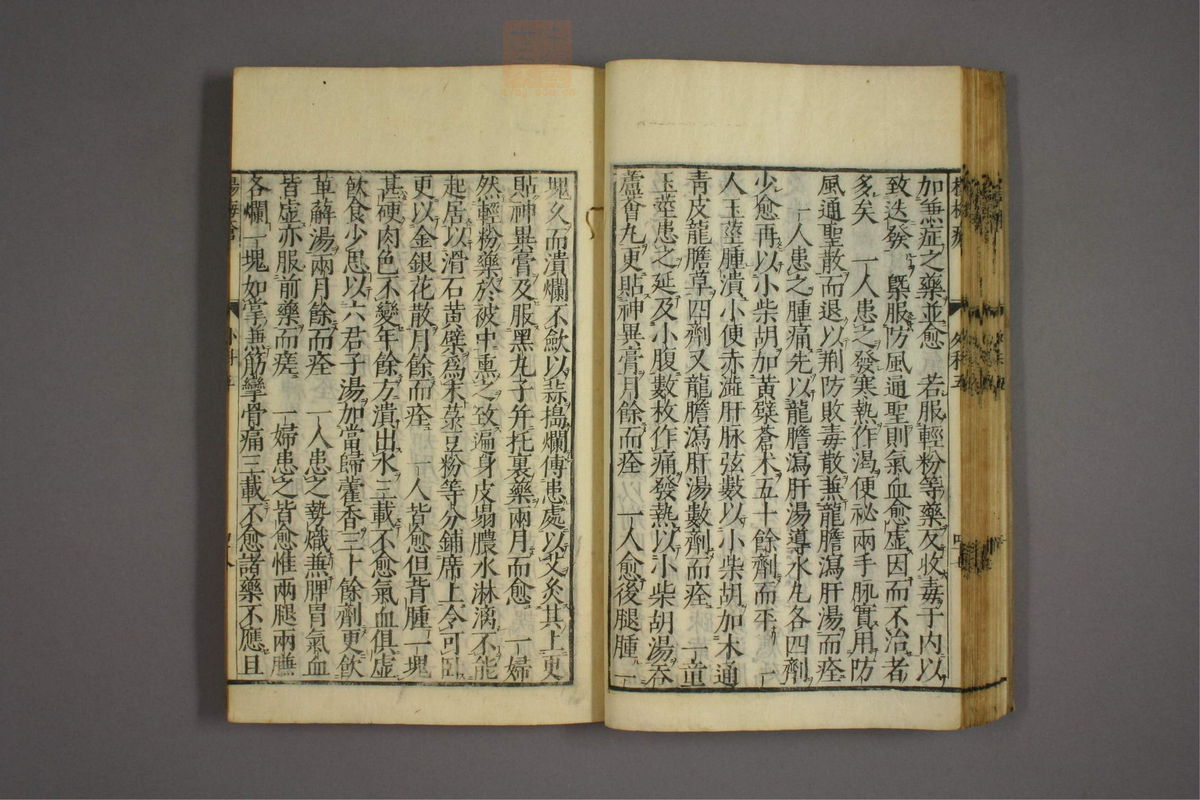 加兼症之藥並愈 若服輕粉等藥反收毒于内以
致迭發 槩服防風通聖則氣血愈虛因而不治者
多矣 一人患之發寒熱作渴便祕兩手脉實用防
風通聖散而退以荆防敗毒散兼龍膽瀉肝湯而痊
一人患之腫痛先以龍膽瀉肝湯導水丸各四劑
少愈再以小柴胡加黃檗蒼术五十餘劑而平 一
人玉莖腫潰小便赤澁肝脉弦數以小柴胡加木通
青皮龍膽草四劑又龍膽瀉肝湯數劑而痊 一童
玉莖患之延及小腹數枚作痛發熱以小柴胡湯吞
蘆薈丸更貼神異膏月餘而痊 一人愈後腿腫一
塊久而潰爛不歛以蒜搗爛傅患處以艾灸其上更
貼神異膏及服黑丸子并托裏藥兩月而愈 一婦
然輕粉藥於被中熏之致遍身皮塌膿水淋漓不能
起居以滑石黄檗爲末菉豆粉等分鋪席上令可臥
更以金銀花散月餘而痊 一人皆愈但背腫一塊
甚硬肉色不變年餘方潰出水三載不愈氣血俱虛
飲食少思以六君子湯加當歸藿香三十餘劑更飲
萆薢湯兩月餘而痊 一人患之勢熾兼脾胃氣血
皆虛亦服前藥而瘥 一婦患之皆愈惟兩腿兩膁
各爛一塊如掌兼筋攣骨痛三載不愈諸藥不應且